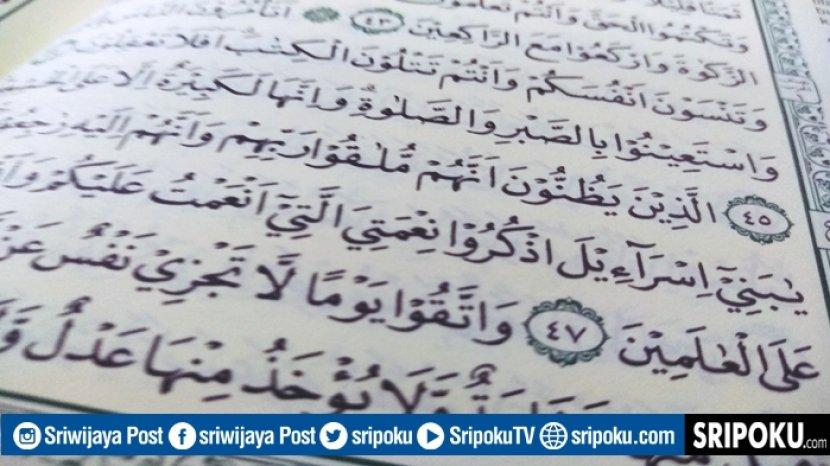 ثَمَنًا قَلِيْلًا
وَتَكْتُمُوا الْحَقَّ وَاَنْتُمْ تَعْلَمُوْنَ
الزَّكٰوةَ وَارْكَعُوْا مَعَ الرَّاكِعِيْنَ ٤٣
وَتَنْسَوْنَ اَنْفُسَكُمْ وَاَنْتُمْ تَتْلُوْنَ الْكِتٰبَ اَفَلَا تَعْقِلُوْنَ
وَاسْتَعِيْنُوْا بِالصَّبْرِ وَالصَّلٰوةِ وَاِنَّهَا لَكَبِيْرَةٌ اِلَّا عَلَى
٤٥ الَّذِيْنَ يَظُنُّوْنَ اَنَّهُمْ مُّلٰقُوْا رَبِّهِمْ وَاَنَّهُمْ اِلَيْهِ
يٰبَنِيْٓ اِسْرَاۤءِيْلَ اذْكُرُوْا نِعْمَتِيَ الَّتِيْٓ اَنْعَمْتُ عَلَيْكُمْ
عَلَى الْعٰلَمِيْنَ ٤٧ وَاتَّقُوْا يَوْمًا لَّا تَجْزِيْ نَفْسٌ عَنْ
وَّلَا يُؤْخَذُ مِنْهَا عَدْلٌ
Sriwijaya Post sriwijaya Post sripoku SripokuTV sripoku.com SRIPOKU.com